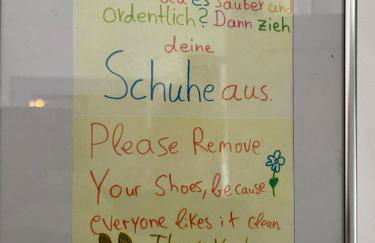 es Sauber und
Ordentlich? Dann zieh
deine
Schuhe aus.
Please Remove
Your Shoes, because
everyone likes it clean